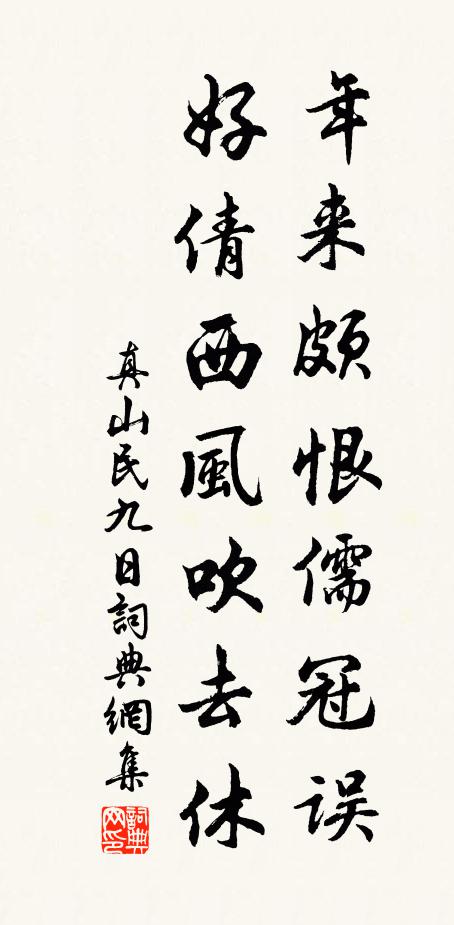 年来颇恨儒冠误
好倩西風吹去休
真山民九日詞典網集
詞典網印